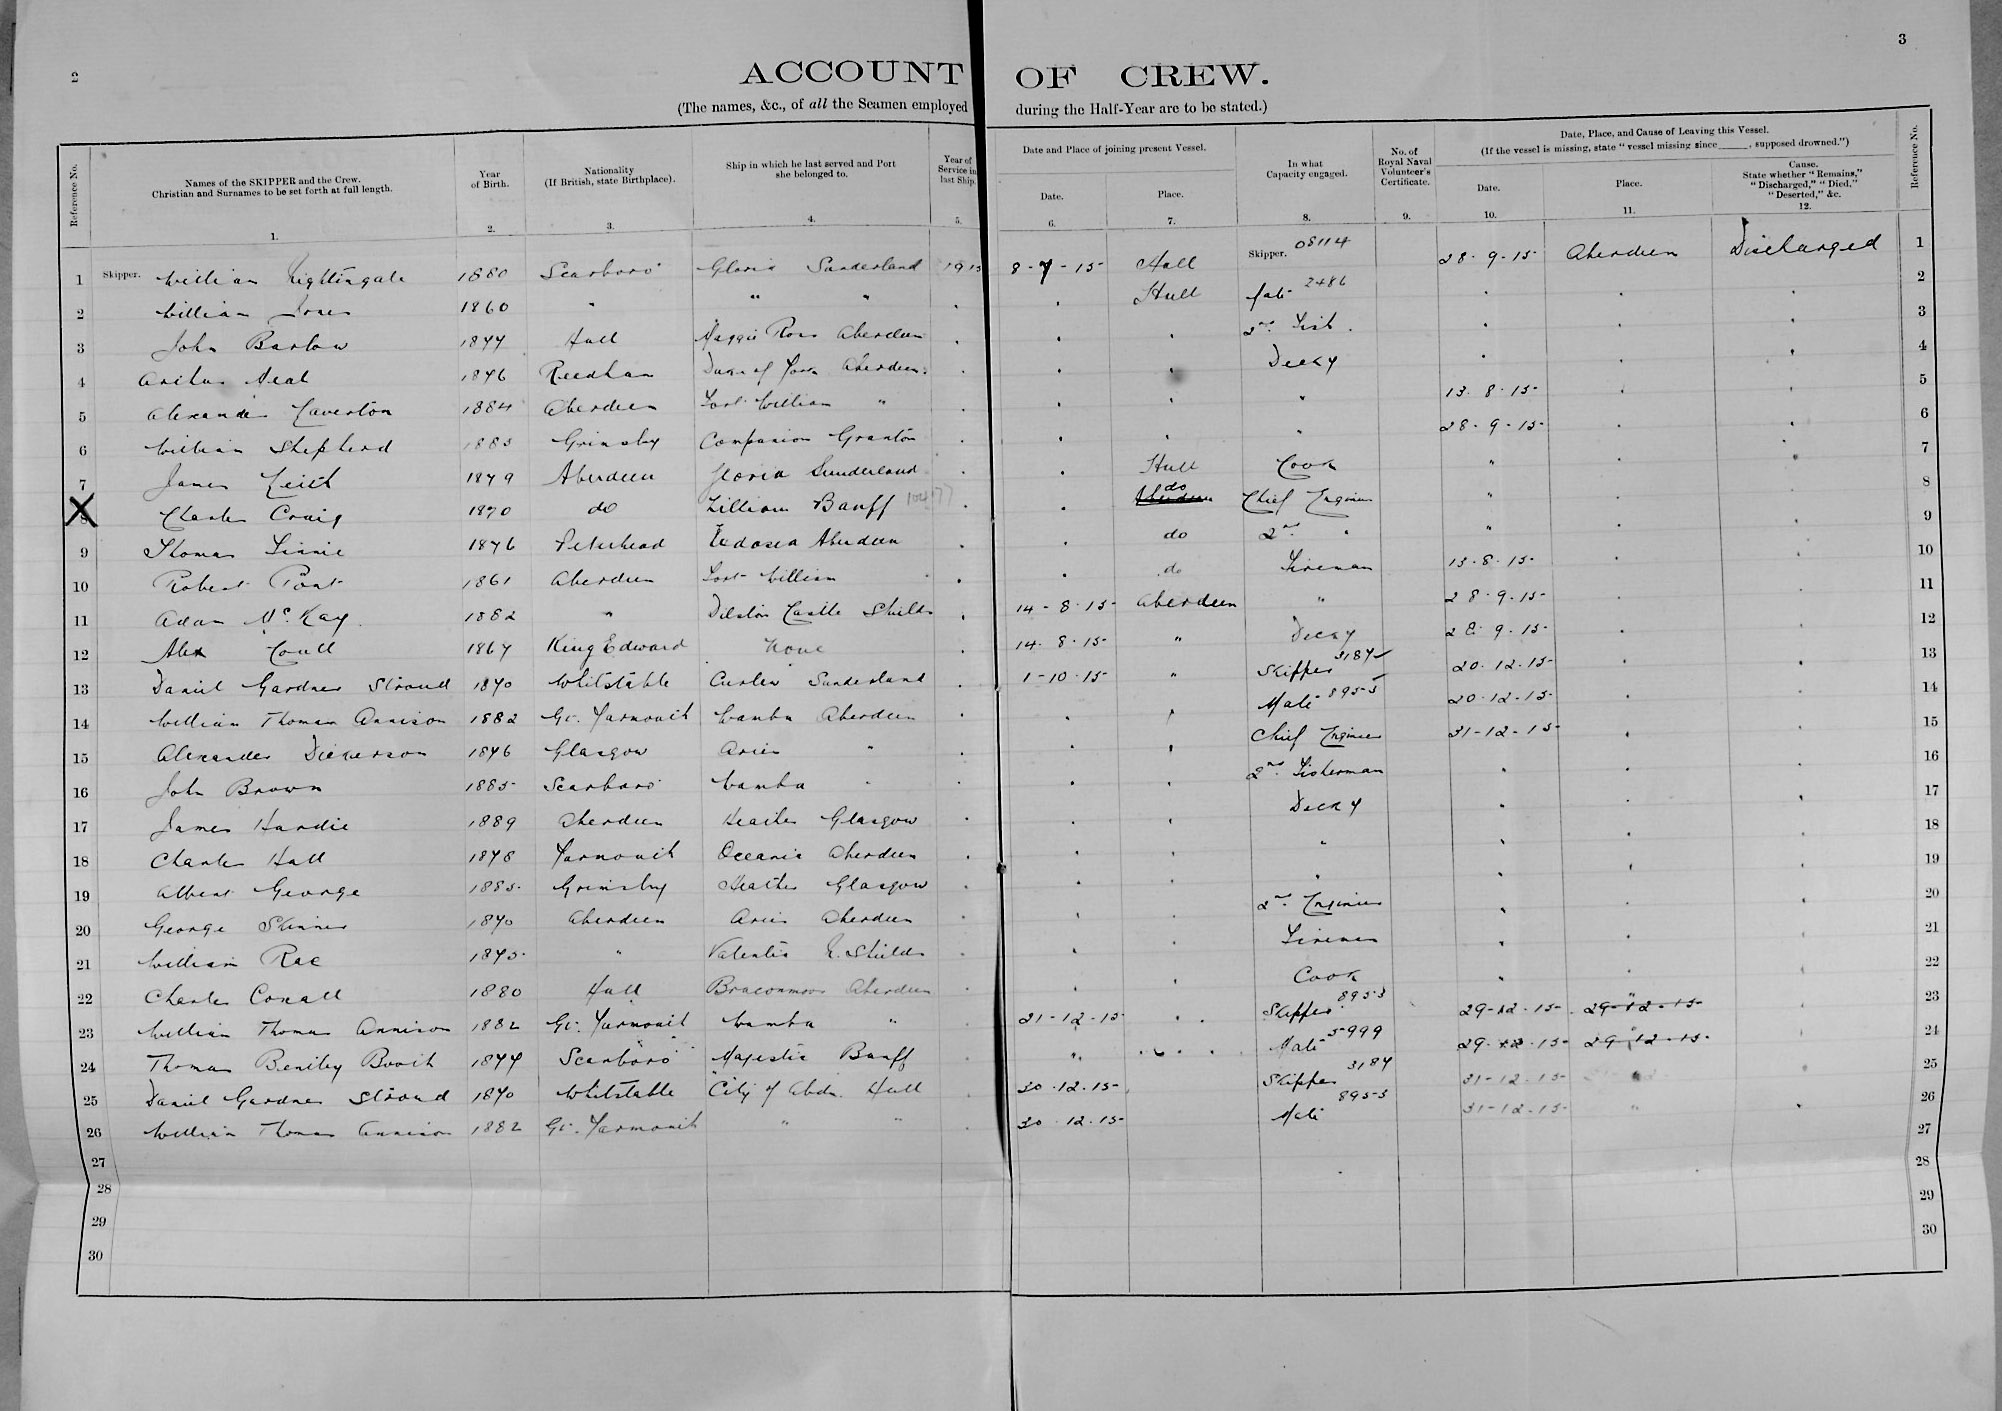 2
3
ACCOUNT OF CREW.
(The names, &c., of all the Seamen employed during the Half-Year are to be stated.)
Reference No. Names of the SKIPPER and the Crew. Christian and Surnames to be set forth at full length. 1. Year of Birth. 2. Nationality (If British, state Birthplace). 3. Ship in which he last served and Port she belonged to. 4. Year of Service in last Ship. 5. Date and Place of joining present Vessel. Date. 6. Place. 7. In what Capacity engaged. 8. No. of Royal Naval Volunteer's Certificate. 9. Date, Place, and Cause of Leaving this Vessel. (If the vessel is missing, state "vessel missing since ____, supposed drowned.") Date. 10. Place. 11. Cause. State whether "Remains," "Discharged," "Died," "Deserted," &c. 12. Reference No.
1 Skipper. William Nightingale 1880 Scarboro' Gloria Sunderland 1915 8-7-15 Hull Skipper. 08114 28-9-15 Aberdeen Discharged 1
2 William Jones 1860 " " " . Hull Mate 2486 . . . 2
3 John Barlow 1877 Hull Maggie Ross Aberdeen . . . 2nd Fish. . . . 3
4 Neal 1876 Reedham Duke of York Aberdeen . . . Decky . . . 4
5 Alexander Laverton 1884 Aberdeen Fort William " . . . " 13.8.15 . . 5
6 William Shepherd 1885 Grimsby Companion Granton . . . " 28-9-15 . . 6
7 James Keith 1879 Aberdeen Gloria Sunderland . . Hull Cook " . . 7
X 8 Charles Craig 1870 do Lillian Banff . . Aberdeen do Chief Engineer " . . 8
9 Thomas Finnie 1876 Peterhead Aberdeen . . do 2nd " " . . 9
10 Robert Pont 1861 Aberdeen Fort William . . do Fireman 13-8-15 . . 10
11 Adam McKay 1882 " Dilston Castle Shields . 14-8-15 Aberdeen " 28.9.15 . . 11
12 Alex Coull 1867 King Edward None . 14.8.15 " Decky 28.9.15 . . 12
13 Daniel Gardner Stroud 1870 Whitstable Curlew Sunderland . 1-10-15 " Skipper 3187 20.12.15 . . 13
14 William Thomas Annison 1882 Gt. Yarmouth Wamba Aberdeen . . . Mate 8955 20.12.15 . . 14
15 Alexander Dickerson 1876 Glasgow Aries " . . . Chief Engineer 31-12-15 . . 15
16 John Brown 1885 Scarboro' Wamba " . . . 2nd Fisherman . . . 16
17 James Hardie 1889 Aberdeen Heather Glasgow . . . Decky . . . 17
18 Charles Hall 1878 Yarmouth Oceanic Aberdeen . . . " . . . 18
19 Albert George 1885 Grimsby Heather Glasgow . . . . . . . 19
20 George Skinner 1870 Aberdeen Aries Aberdeen . . . 2nd Engineer . . . 20
21 William Rae 1875 " Valentia N. Shields . . . Fireman . . . 21
22 Charles Coxall 1880 Hull Braconmoor Aberdeen . . . Cook . . . 22
23 William Thomas Annison 1882 Gt. Yarmouth Wamba " . 21-12-15 . . Skipper 8953 29-12-15 29-12-15 " . 23
24 Thomas Bentley Booth 1877 Scarboro' Majestic Banff . " . . . Mate 5999 29.12.15 29.12.15 " . 24
25 Daniel Gardner Stroud 1870 Whitstable City of Abdn. Hull . 30.12.15 Skipper 3187 31-12-15 25
26 William Thomas Annison 1882 Gt. Yarmouth " " . 30.12.15 Mate 8955 31-12-15 " . 26
27 27
28 28
29 29
30 30